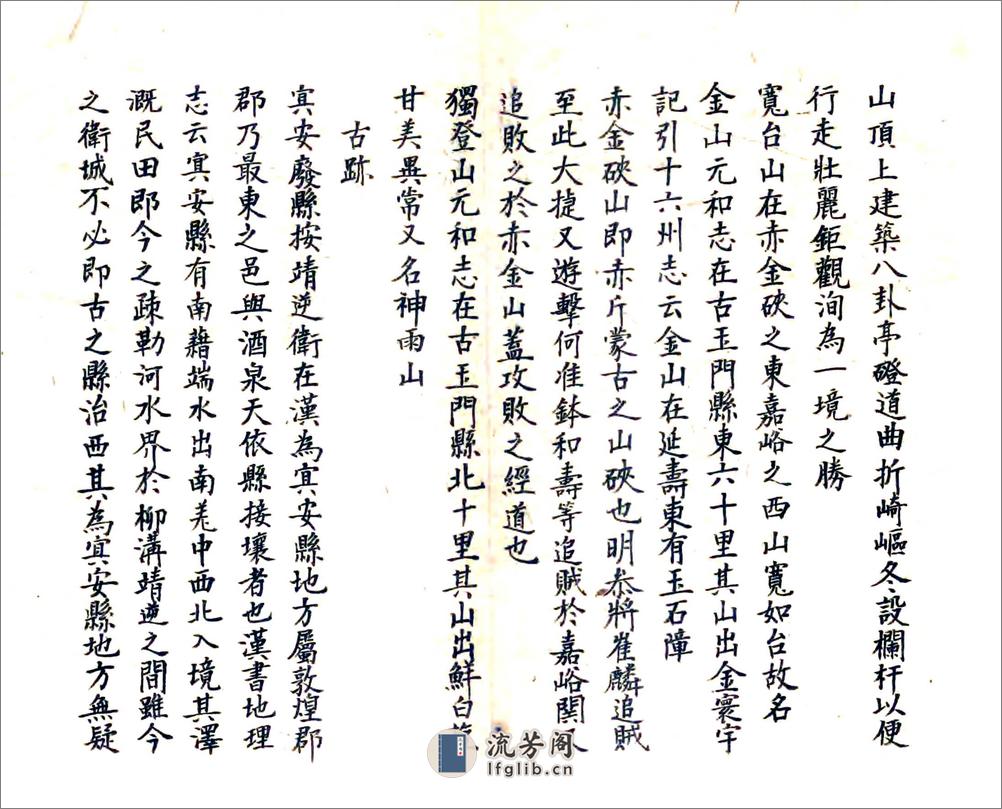 山頂上建築八卦亭磴道曲折崎嶇冬設欄杆以便
行走壯麗鉅觀洵為一境之勝
寬台山在赤金硤之東嘉峪之西山寬如台故名
金山元和志在古玉門縣東六十里其山出金寰宇
記引十六州志云金山在延壽東有玉石障
赤金硤山即赤斤蒙古之山硤也明叅將崔麟追賊
至此大㨗又遊擊何准鉢和壽等追賊於嘉峪関
追敗之於赤金山蓋攻敗之經道也
獨登山元和志在古玉門縣北十里其山出鮮白
甘美異常又名神雨山
古跡
㝠安廢縣按靖逆衛在漢為㝠安縣地方屬敦煌郡
郡乃最東之邑與酒泉天依縣接壤者也漢書地理
志云㝠安縣有南籍端水出南羌中西北入境其澤
溉民田即今之疎勒河水界於柳溝靖逆之間雖今
之衛城不必即古之縣治西其為㝠安縣地方無疑
流芳阁
lfglib.cn